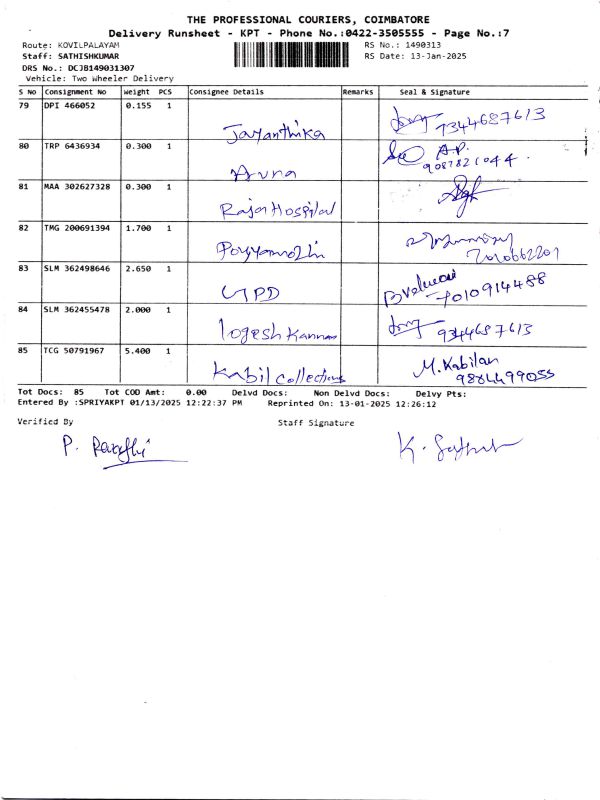 THE PROFESSIONAL COURIERS, COIMBATORE
Delivery Runsheet - KPT - Phone No.:0422-3505555 - Page No.:7
Route: KOVILPALAYAM RS No.: 1490313
Staff: SATHISHKUMAR RS Date: 13-Jan-2025
DRS No.: DCJB149031307
Vehicle: Two Wheeler Delivery
S No Consignment No Weight PCS Consignee Details Remarks Seal & Signature
79 DPI 466052 0.155 1 Jayanthika 9344687613
80 TRP 6436934 0.300 1 Aruna A.P. 9087821044
81 MAA 302627328 0.300 1 Rajan Hospital
82 TMG 200691394 1.700 1 Poyyamozhi
83 SLM 362498646 2.650 1 7010914488
84 SLM 362455478 2.000 1 logesh Kannan 9344687613
85 TCG 50791967 5.400 1 Kabil Collections M. Kabilan 9884499055
Tot Docs: 85 Tot COD Amt: 0.00 Delvd Docs: Non Delvd Docs: Delvy Pts:
Entered By :SPRIYAKPT 01/13/2025 12:22:37 PM Reprinted On: 13-01-2025 12:26:12
Verified By Staff Signature